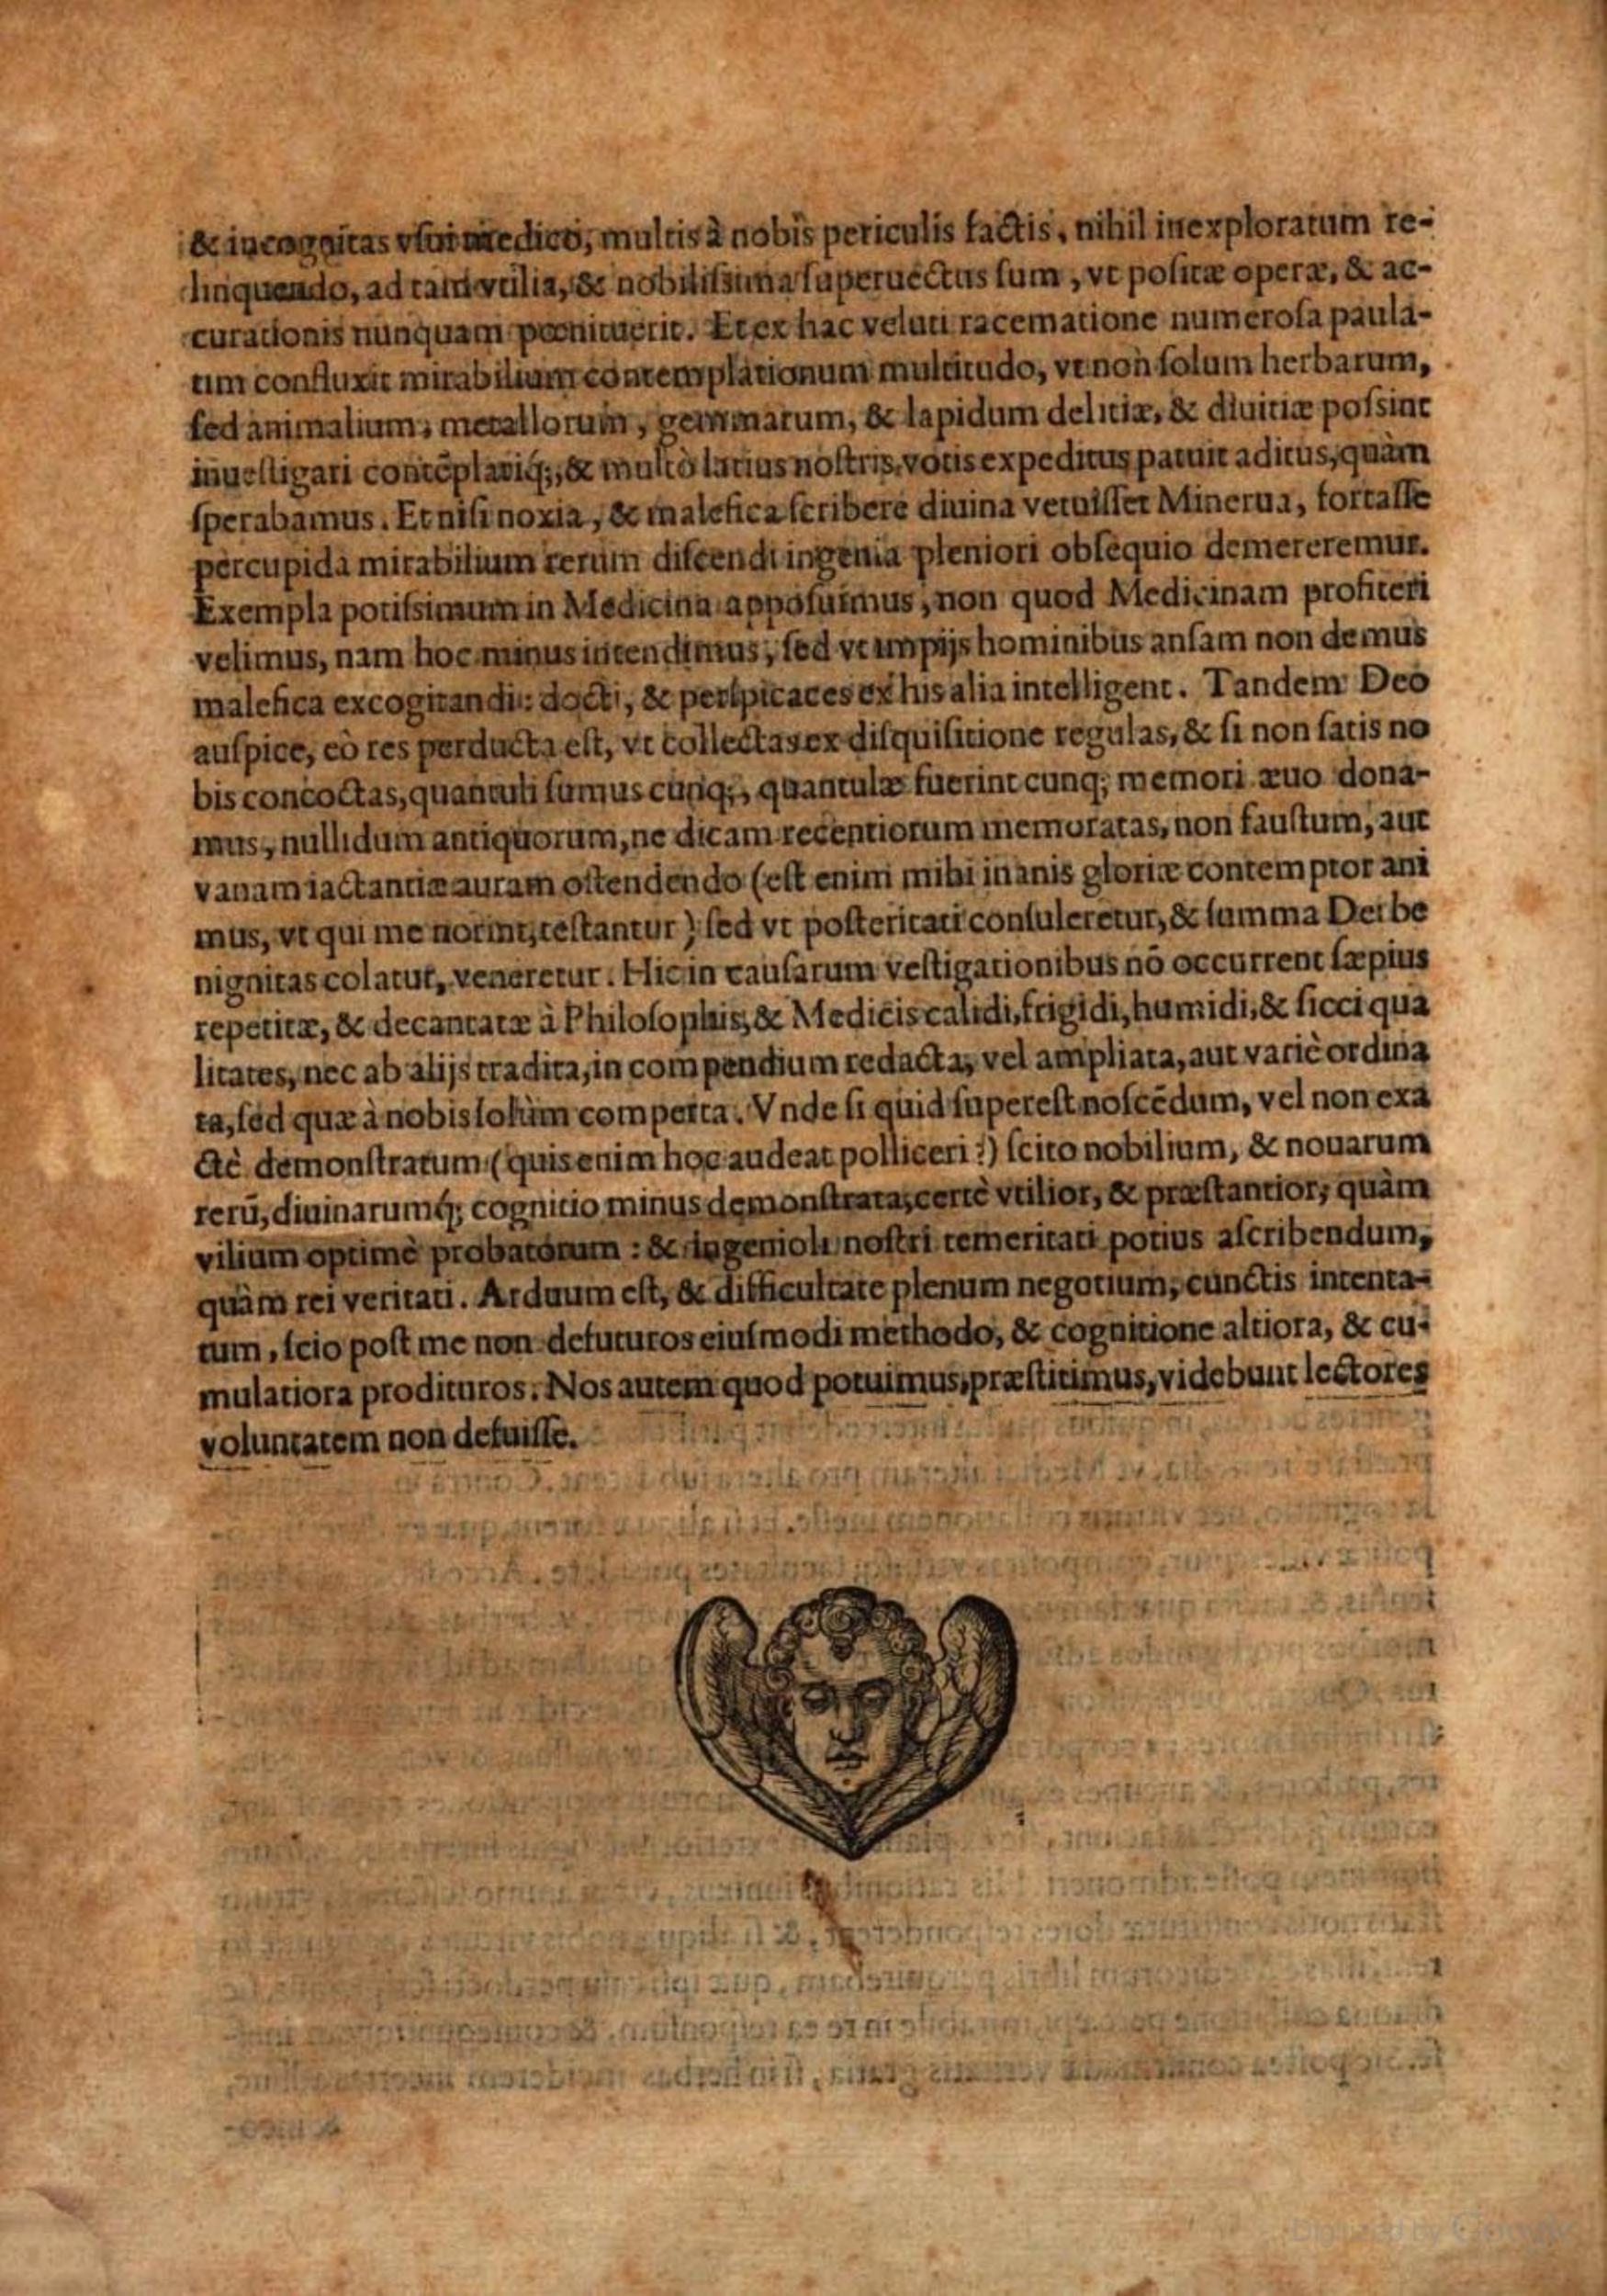 & incognitas vſui medico, multis à nobis periculis factis, nihil inexploratum re-
linquendo, ad tam vtilia, & nobiliſsima ſuperuectus ſum, vt poſitæ operæ, & ac-
curationis nunquam pœnituerit. Et ex hac veluti racematione numeroſa paula-
tim confluxit mirabilium contemplationum multitudo, vt non ſolum herbarum,
ſed animalium, metallorum, gemmarum, & lapidum delitiæ, & diuitiæ poſsint
inueſtigari contēplariq́;, & multò latius noſtris votis expeditus patuit aditus, quàm
ſperabamus. Et niſi noxia, & malefica ſcribere diuina vetuiſſet Minerua, fortaſſe
percupida mirabilium rerum diſcendi ingenia pleniori obſequio demereremur.
Exempla potiſsimum in Medicina appoſuimus, non quod Medicinam profiteri
velimus, nam hoc minus intendimus, ſed vt impijs hominibus anſam non demus
malefica excogitandi: docti, & perſpicaces ex his alia intelligent. Tandem Deo
auſpice, eò res perducta eſt, vt collectas ex diſquiſitione regulas, & ſi non ſatis no
bis concoctas, quantuli ſumus cunq;, quantulæ fuerint cunq; memori æuo dona-
mus, nullidum antiquorum, ne dicam recentiorum memoratas, non fauſtum, aut
vanam iactantiæ auram oſtendendo (eſt enim mihi inanis gloriæ contemptor ani
mus, vt qui me norint, teſtantur) ſed vt poſteritati conſuleretur, & ſumma Dei be
nignitas colatur, veneretur. Hic in cauſarum veſtigationibus nō occurrent ſæpius
repetitæ, & decantatæ à Philoſophis, & Medicis calidi, frigidi, humidi, & ſicci qua
litates, nec ab alijs tradita, in compendium redacta, vel ampliata, aut variè ordina
ta, ſed quæ à nobis ſolùm comperta. Vnde ſi quid ſupereſt noſcēdum, vel non exa
ctè demonſtratum (quis enim hoc audeat polliceri?) ſcito nobilium, & nouarum
rerū, diuinarumq́; cognitio minus demonſtrata, certè vtilior, & præſtantior, quàm
vilium optimè probatorum: & ingenioli noſtri temeritati potius aſcribendum,
quàm rei veritati. Arduum eſt, & difficultate plenum negotium, cunctis intenta-
tum, ſcio poſt me non defuturos eiuſmodi methodo, & cognitione altiora, & cu-
mulatiora prodituros. Nos autem quod potuimus, præſtitimus, videbunt lectores
voluntatem non defuiſſe.
Digitized by Google